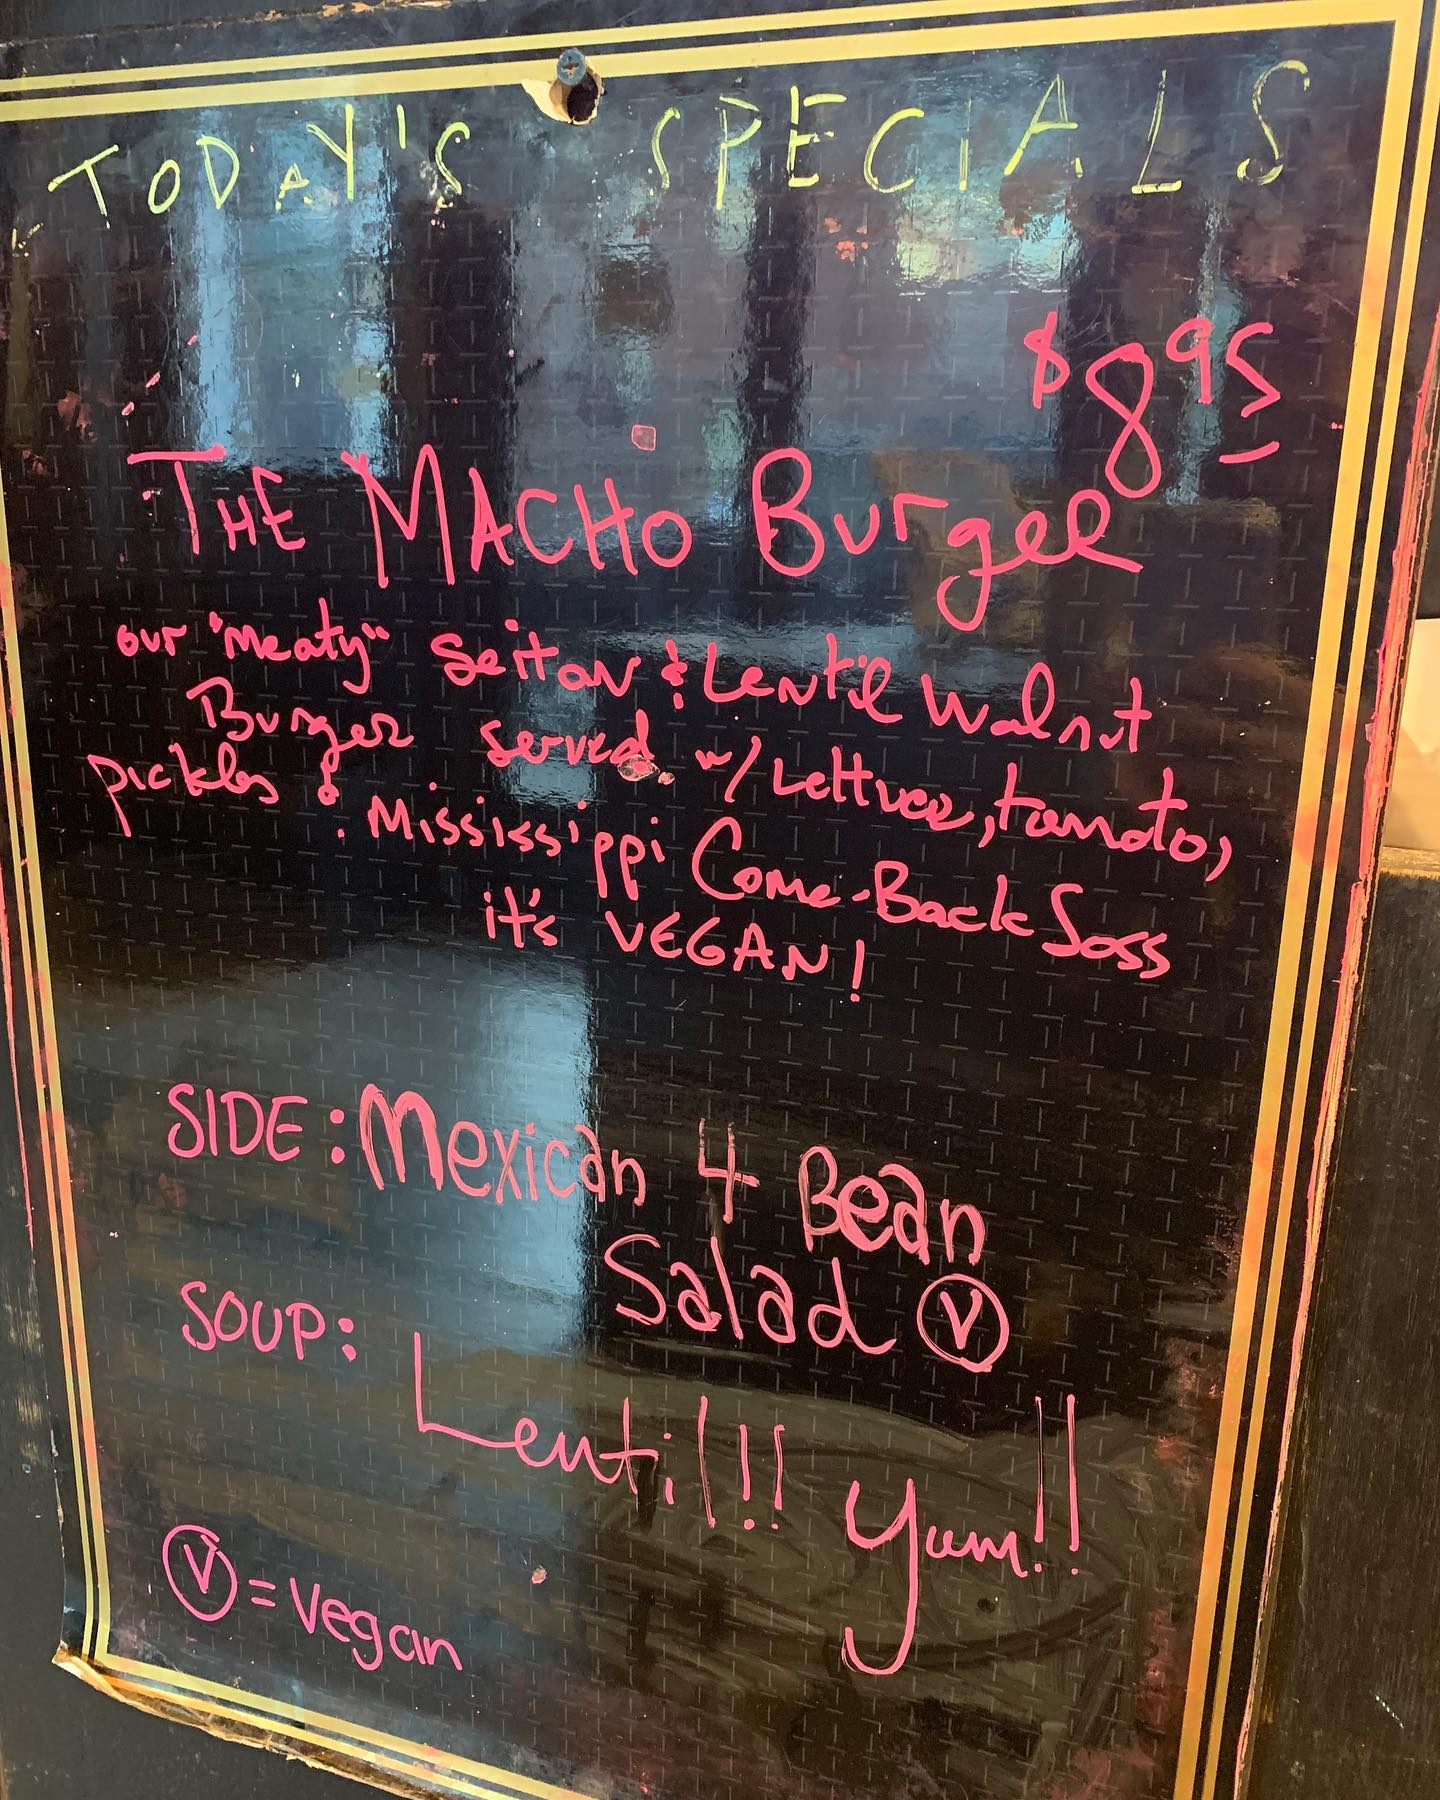 TODAY'S SPECIALS
$8.95
THE MACHO Burger
our "meaty" Seitan & Lentil Walnut
Burger served w/ Lettuce, tomato,
pickles & Mississippi Come-Back Soss
it's VEGAN!
SIDE: Mexican 4 Bean
Salad Ⓥ
SOUP: Lentil!!! Yum!!
Ⓥ = Vegan